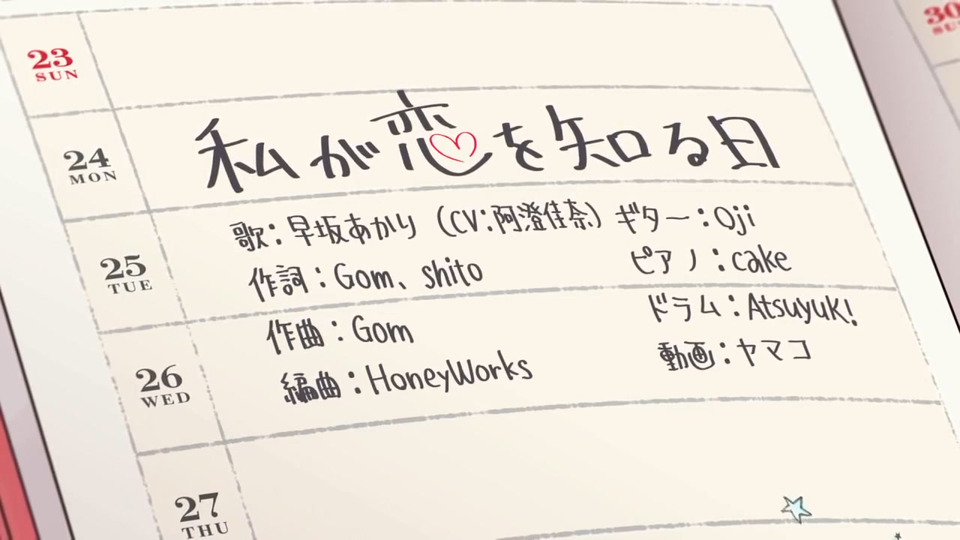 23
SUN
30
SUN
24
MON
私が恋を知る日
25
TUE
歌：早坂あかり（CV：阿澄佳奈）ギター：Oji
作詞：Gom、shito
ピアノ：cake
作曲：Gom
ドラム：Atsuyuk!
26
WED
編曲：HoneyWorks
動画：ヤマコ
27
THU